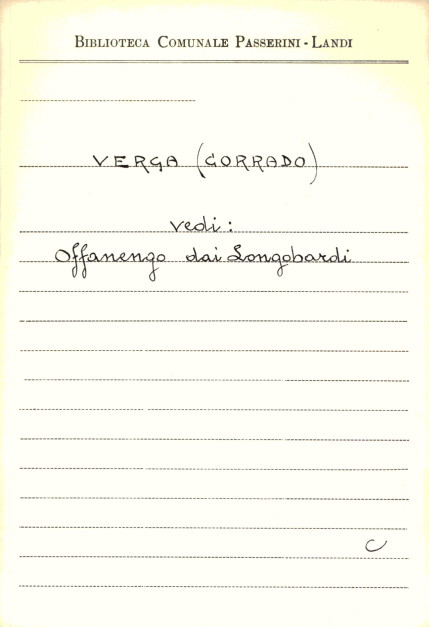 BIBLIOTECA COMUNALE PASSERINI - LANDI
VERGA (CORRADO)
vedi:
Offanengo dai Longobardi
C